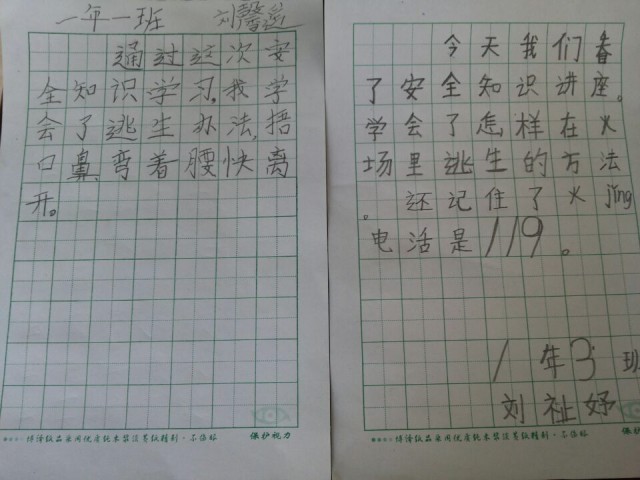 一年一班 刘馨遥
通过这次安
全知识学习,我学
会了逃生办法,捂
口鼻,弯着腰快离
开。
保护视力
今天我们看
了安全知识讲座。
学会了怎样在火
场里逃生的方法
。还记住了火jǐng
电话是119。
1年3班
刘祉妤
保护视力